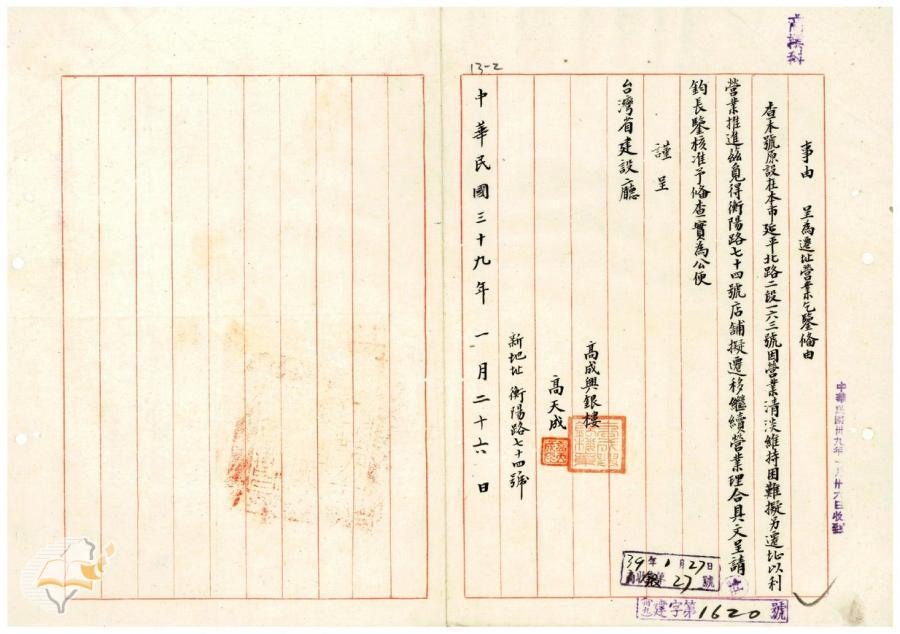 商務科
13-2
事由　呈為遷址營業乞鑒備由
查本號原設在本市延平北路二段一六三號因營業清淡維持困難擬另遷址以利
營業推進茲覓得衡陽路七十四號店舖擬遷移繼續營業理合具文呈請
鈞長鑒核准予備查實為公便
謹呈
台灣省建設廳
高成興銀樓
高天成
新地址 衡陽路七十四號
中華民國三十九年 一月二十六日
中華民國卅九年一月廿六日收到
39年1月27日
27號
建字第1620號